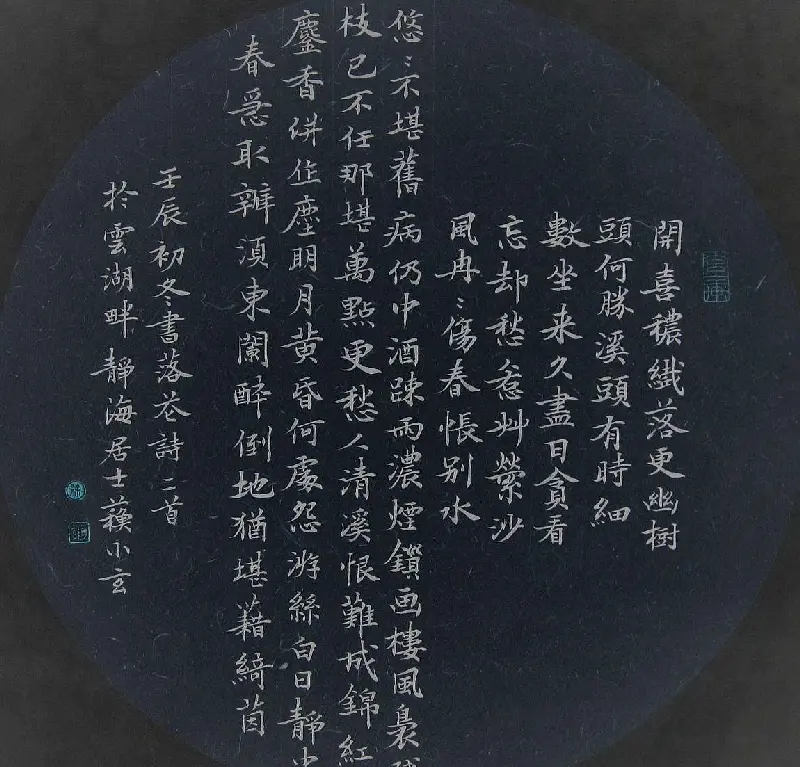 開喜穠纖落更幽樹
頭何勝溪頭有時細
數坐来久盡日貪看
忘却愁惹艸縈沙
風冉〻傷春悵别水
悠〻不堪舊病仍中酒踈雨濃煙鎖画樓風裊
枝已不任那堪萬點更愁人清溪恨難成錦紅
香併作塵明月黄昏何處怨游絲白日靜中
春急取辦湏東闌醉倒地猶堪藉綺茵
壬辰初冬書落花詩二首
於雲湖畔靜海居士蘓小玄